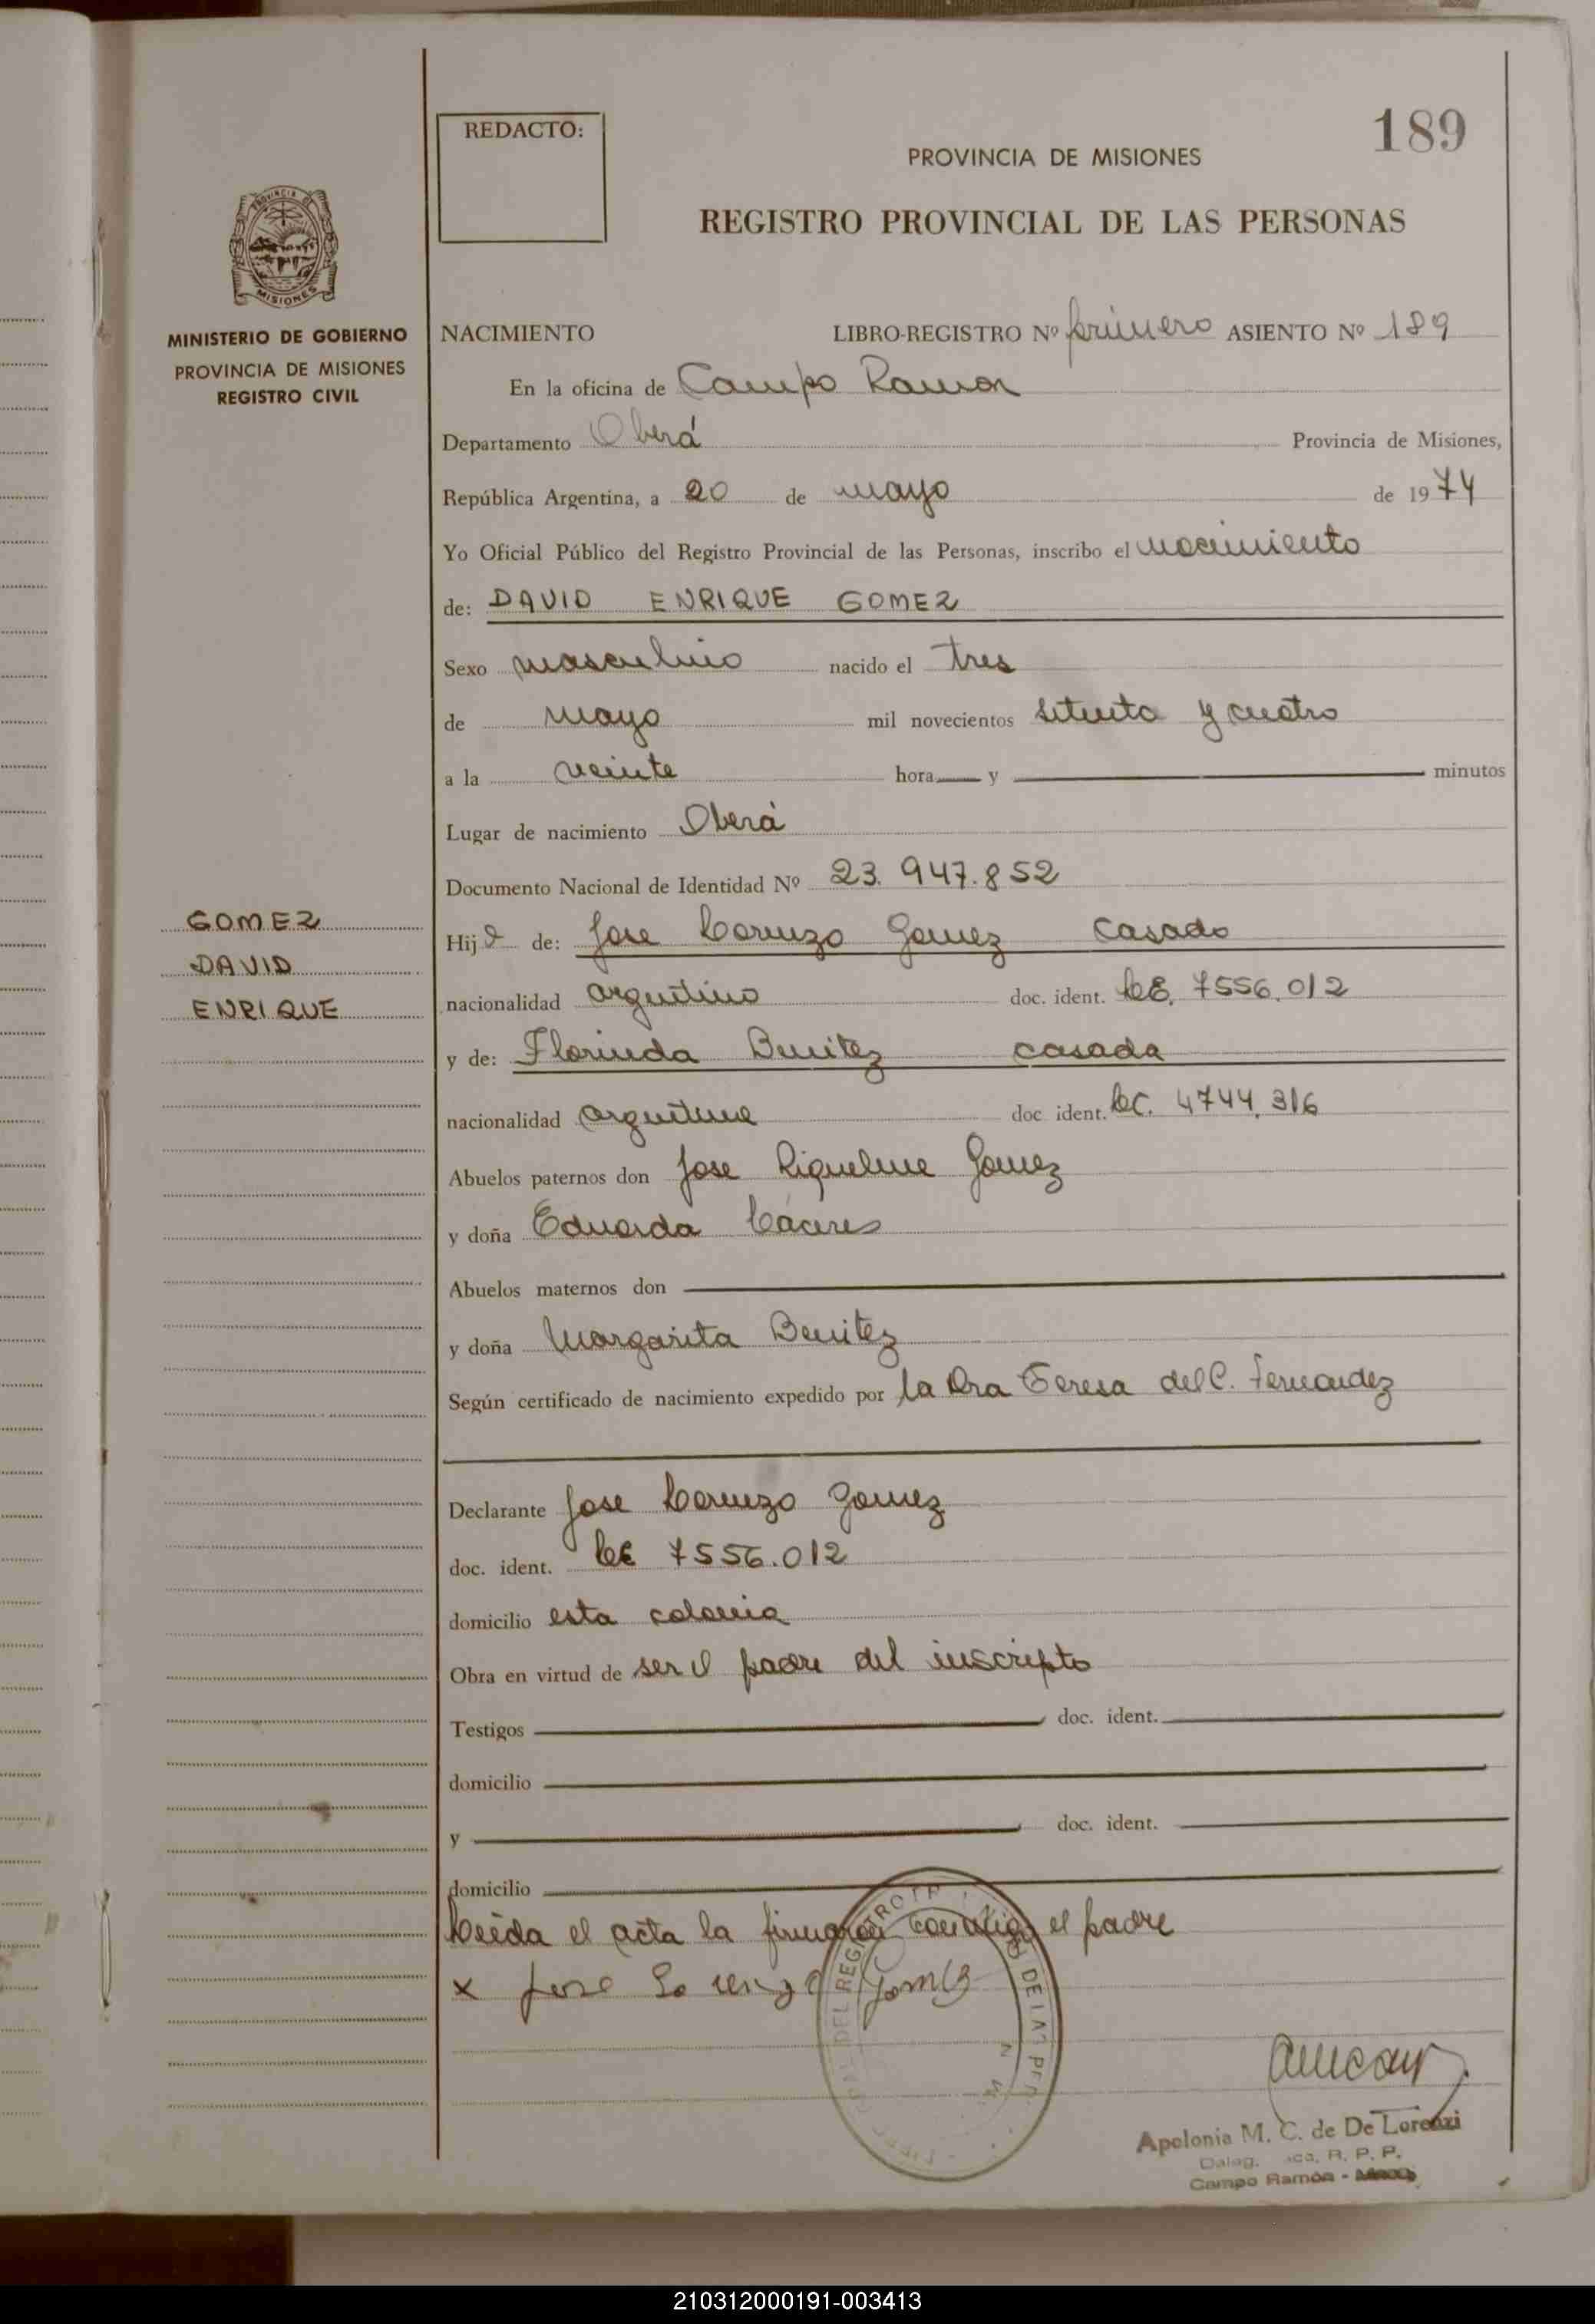 189
REDACTO:
PROVINCIA DE MISIONES
REGISTRO PROVINCIAL DE LAS PERSONAS
PROVINCIA DE
MISIONES
MINISTERIO DE GOBIERNO
PROVINCIA DE MISIONES
REGISTRO CIVIL
NACIMIENTO LIBRO-REGISTRO Nº primero ASIENTO Nº 189
En la oficina de Campo Ramon
Departamento Oberá Provincia de Misiones,
República Argentina, a 20 de mayo de 1974
Yo Oficial Público del Registro Provincial de las Personas, inscribo el nacimiento
de: DAVID ENRIQUE GOMEZ
Sexo masculino nacido el tres
de mayo mil novecientos setenta y cuatro
a la veinte hora y minutos
Lugar de nacimiento Oberá
Documento Nacional de Identidad Nº 23.947.852
GOMEZ
DAVID
ENRIQUE
Hijo de: Jose Lorenzo Gomez casado
nacionalidad argentino doc. ident. LE. 7556.012
y de: Florinda Benitez casada
nacionalidad argentina doc ident. LC. 4744.316
Abuelos paternos don Jose Riquelme Gomez
y doña Eduarda Cáceres
Abuelos maternos don
y doña Margarita Benitez
Según certificado de nacimiento expedido por la Dra Teresa del C. Fernandez
Declarante Jose Lorenzo Gomez
doc. ident. LE 7556.012
domicilio esta colonia
Obra en virtud de ser el padre del inscripto
Testigos doc. ident.
domicilio
y doc. ident.
domicilio
Leida el acta la firmaron conmigo el padre
x Jose Lorenzo Gomez
DEL REGISTRO DE LAS PER
Apolonia M. C. de De Lorenzi
R. P. P.
Campo Ramón -
210312000191-003413